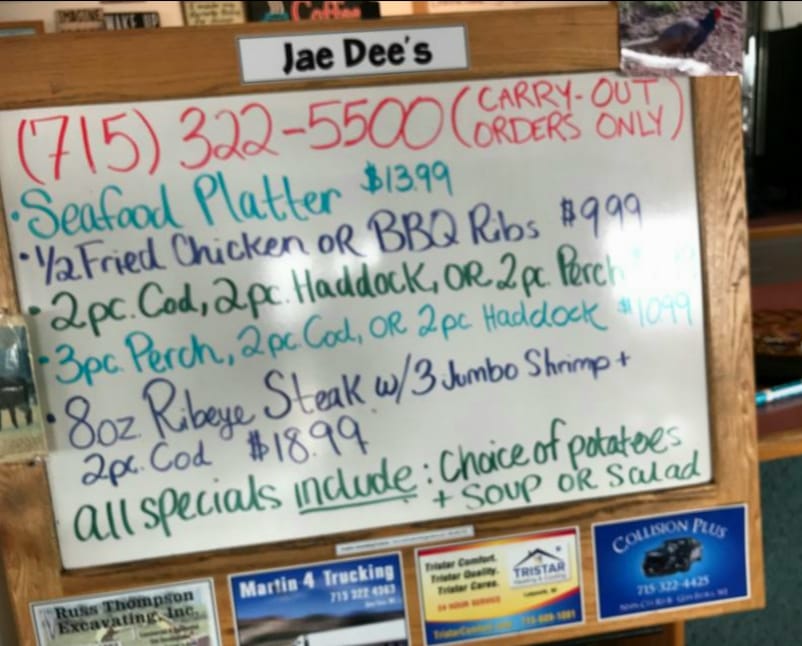 IMAGINE
WAKE UP
Coffee
Jae Dee's
(715) 322-5500 (CARRY-OUT
ORDERS ONLY)
• Seafood Platter $13.99
• 1/2 Fried Chicken OR BBQ Ribs $9.99
• 2pc. Cod, 2pc. Haddock, OR 2pc. Perch
• 3pc. Perch, 2pc. Cod, OR 2pc Haddock $10.99
• 8oz. Ribeye Steak w/3 Jumbo Shrimp +
2pc. Cod $18.99
all specials include: Choice of potatoes
+ SOUP OR Salad
Russ Thompson
Excavating, Inc.
Martin 4 Trucking
715 322 4363
Tristar Comfort.
Tristar Quality.
Tristar Cares.
24 HOUR SERVICE
TRISTAR
Heating & Cooling
COLLISION PLUS
715-322-4425